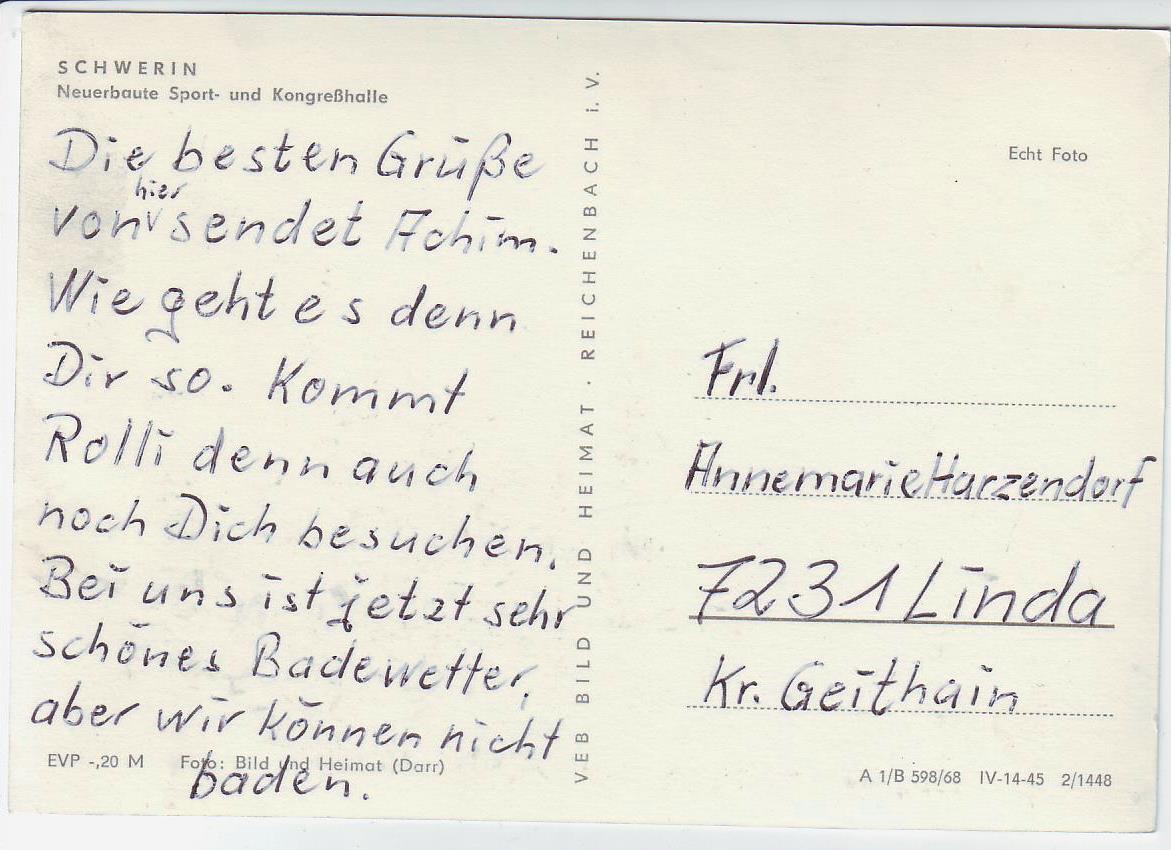 SCHWERIN
Neuerbaute Sport- und Kongreßhalle
Die besten Grüße
von hier sendet Achim.
Wie geht es denn
Dir so. Kommt
Rolli denn auch
noch Dich besuchen.
Bei uns ist jetzt sehr
schönes Badewetter,
aber wir können nicht
baden.
EVP -,20 M Foto: Bild und Heimat (Darr)
VEB BILD UND HEIMAT · REICHENBACH i. V.
Echt Foto
Frl.
Annemarie Harzendorf
7231 Linda
Kr. Geithain
A 1/B 598/68 IV-14-45 2/1448